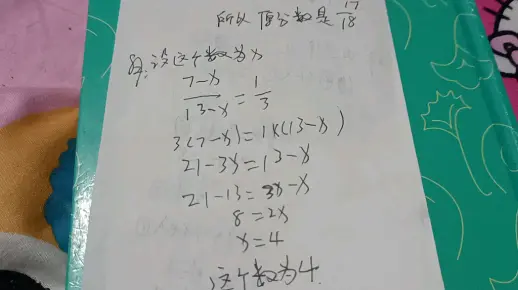 所以 原分数是 17/18
解:设这个数为x
7-x/13-x = 1/3
3(7-x)=1×(13-x)
21-3x=13-x
21-13=3x-x
8=2x
x=4
这个数为4.